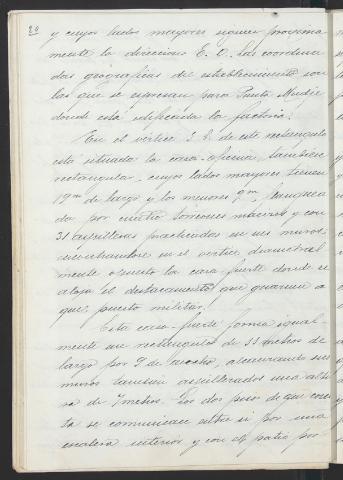 20
y cuyos lados mayores siguen proxima
mente la direccion E. O. Las coordena
das geograficas del establecimiento son
las que se expresan para Punta Mudje
donde está edificada la factoria.
En el vértice S. E. de este rectangulo
está situada la casa-oficina, tambien
rectangular, cuyos lados mayores tienen
19m de largo y los menores 9m, flanquea
da por cuatro torreones macizos y con
31 aspilleras practicadas en sus muros,
encontrandose en el vertice diametral
mente opuesto la casa fuerte donde se
aloja el destacamento que guarnece a
quel puesto militar.
Esta casa-fuerte forma igual-
mente un rectangulo de 11 metros de
largo por 9 de ancho, alcanzando sus
muros tambien aspillerados una altu
ra de 7 metros. Los dos pisos de que cons
ta se comunican entre si por una
escalera interior y con el patio por